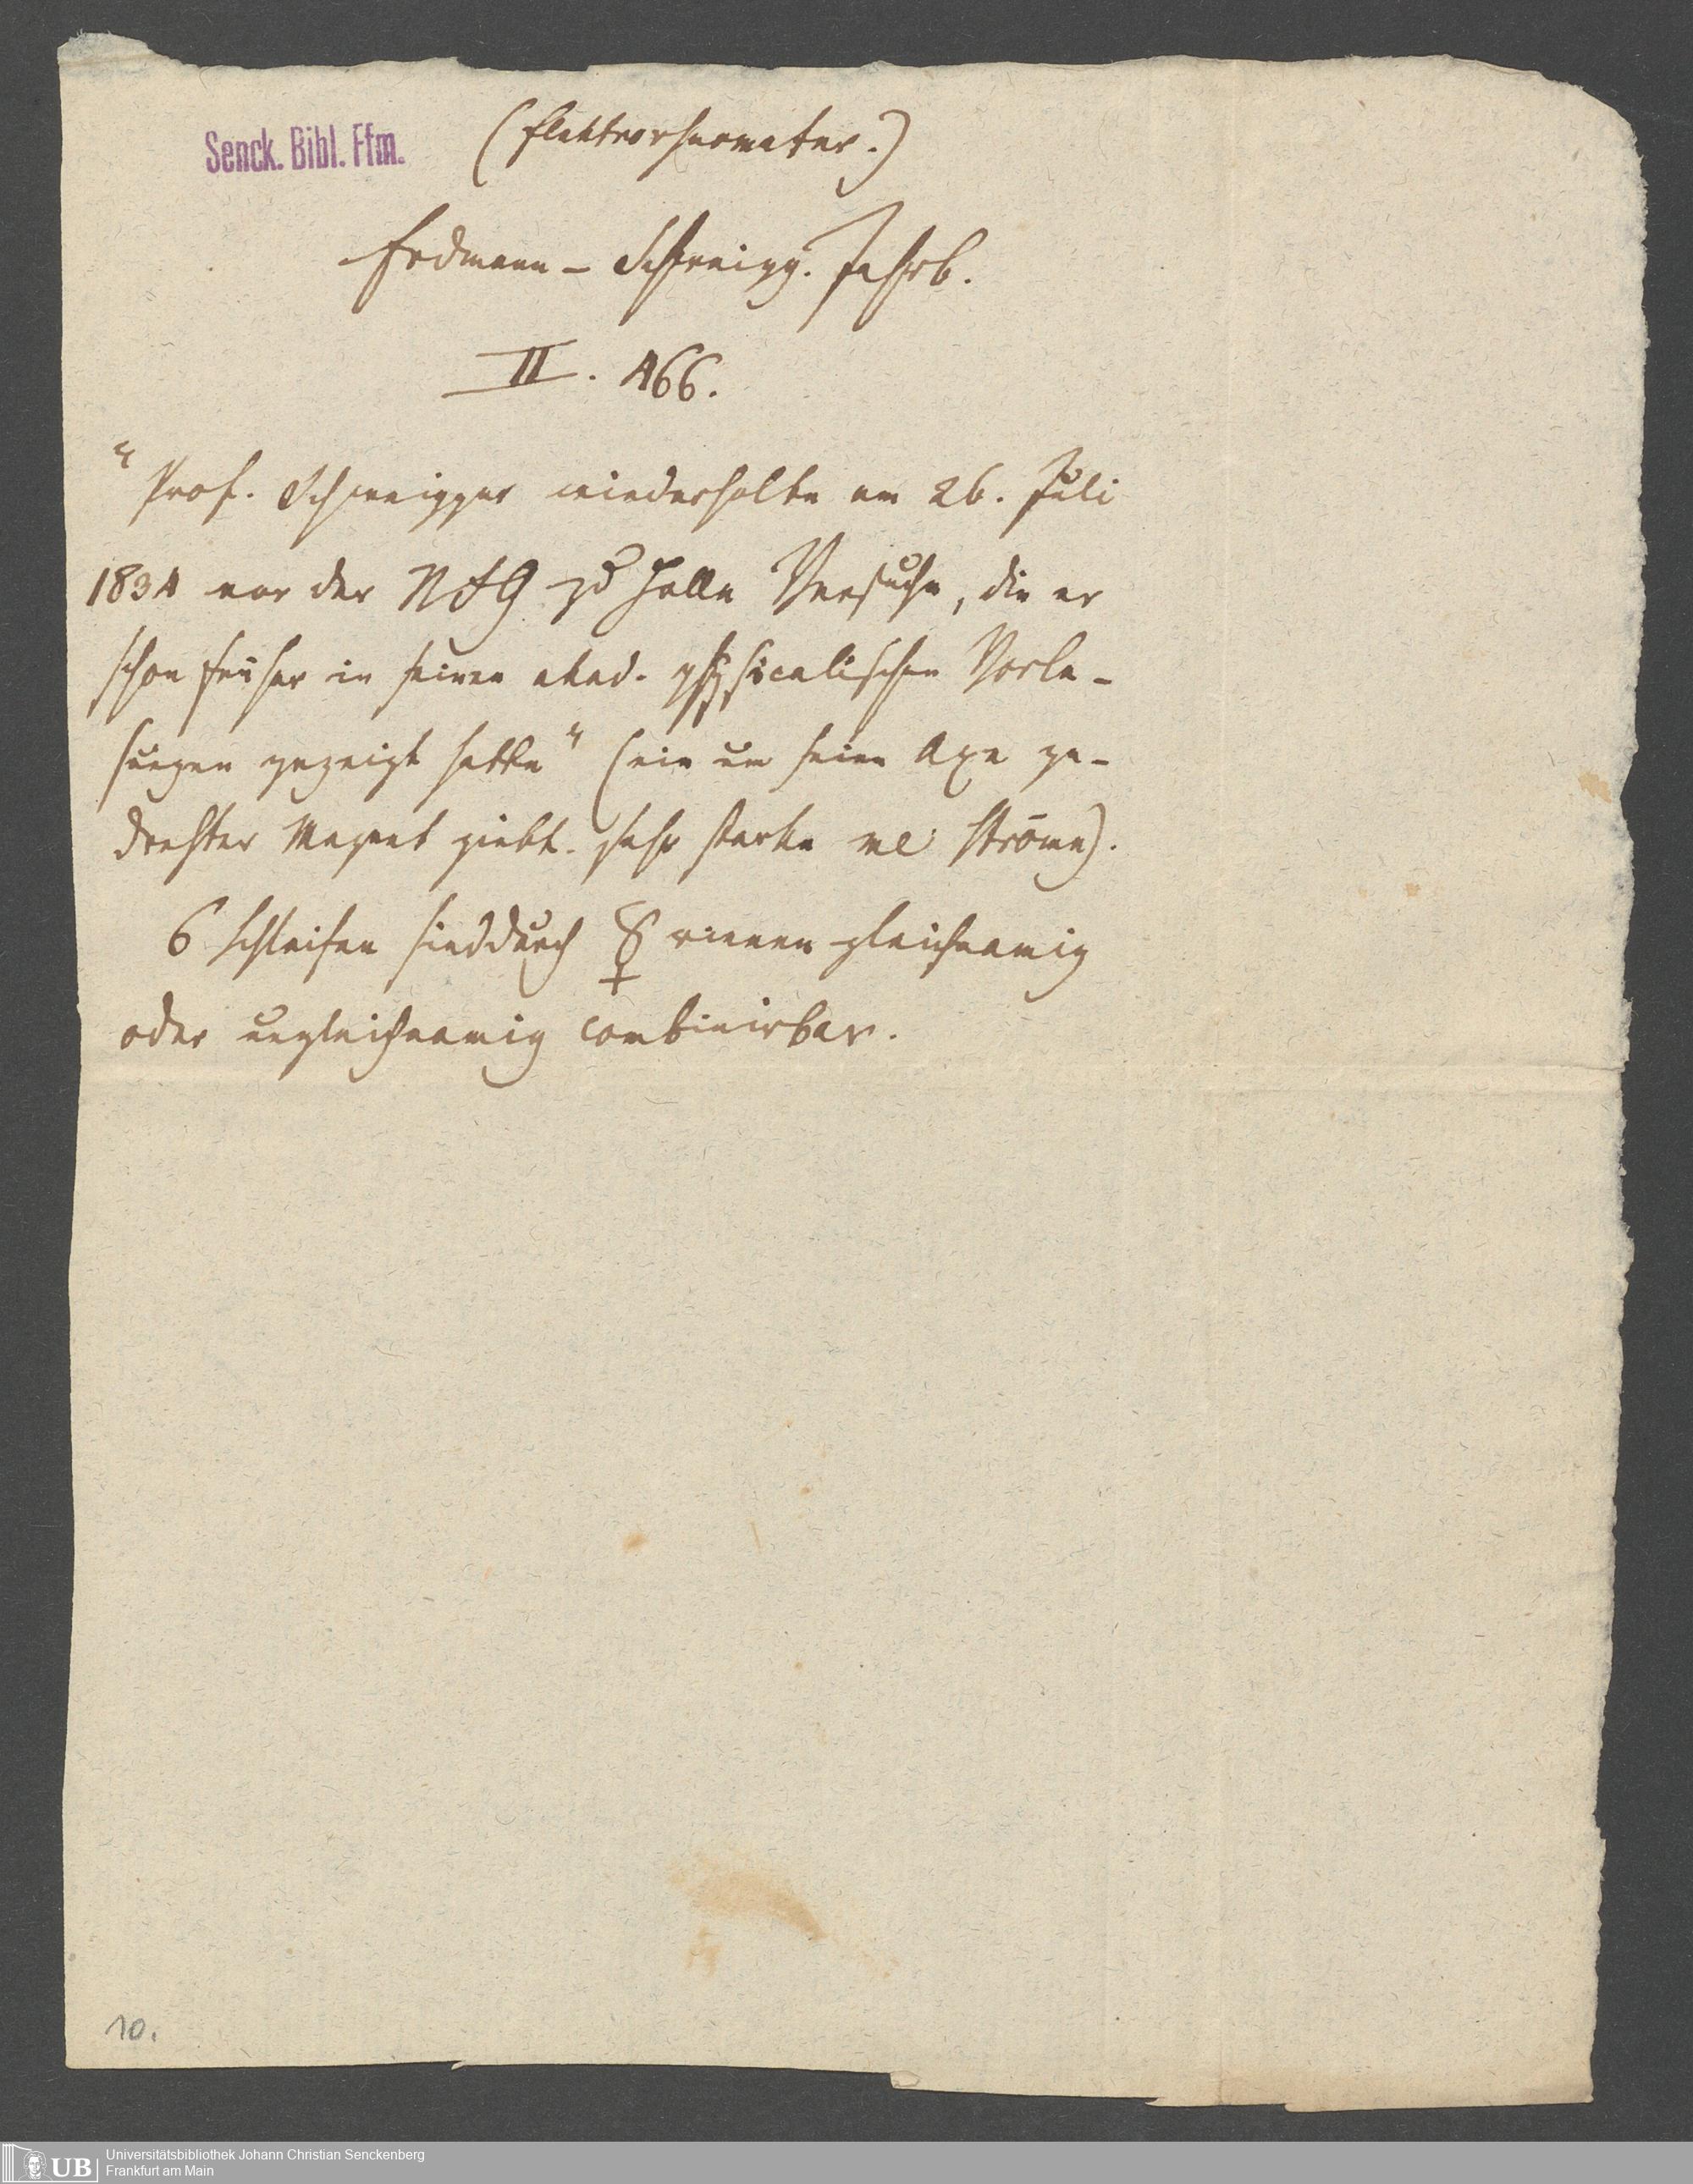 Senck. Bibl. Ffm.
(Elektrorheometer.)
Erdmann - Schweigg. Jahrb.
II. 466.
"Prof. Schweigger wiederholte am 26. Juli
1834 vor der NFG zu Halle Versuche, die er
schon früher in seinen akad. physicalischen Vorle-
sungen gezeigt hatte" (ein um seine Axe ge-
drehter Magnet giebt sehr starke me Ströme).
6 Schleifen sind durch ☿ rinnen gleichnamig
oder ungleichnamig combinirbar.
10.
UB
Universitätsbibliothek Johann Christian Senckenberg
Frankfurt am Main